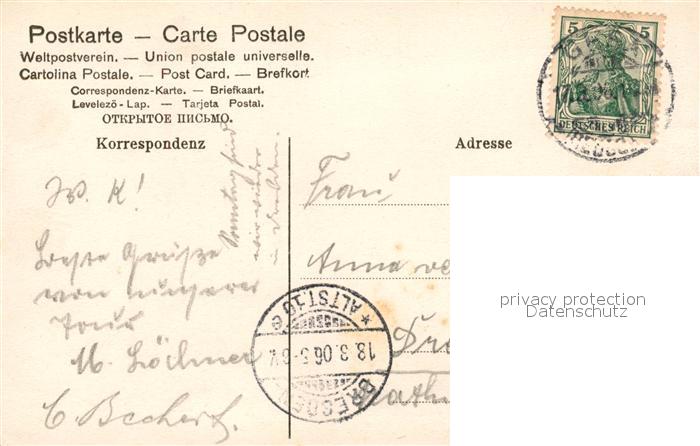 Postkarte — Carte Postale
Weltpostverein. — Union postale universelle.
Cartolina Postale. — Post Card. — Brefkort
Correspondenz-Karte. — Briefkaart.
Levelező-Lap. — Tarjeta Postal.
ОТКРЫТОЕ ПИСЬМО.
Korrespondenz
Adresse
5 5
DEUTSCHES REICH
W. K!
Beste Grüße
von unserer
Tour
M.
Sonntag sind
wir wieder
in Dresden.
Frau
Anna
Dre
DRESDEN
* ALTST.16 e
18.3.06.5-6V.
privacy protection
Datenschutz